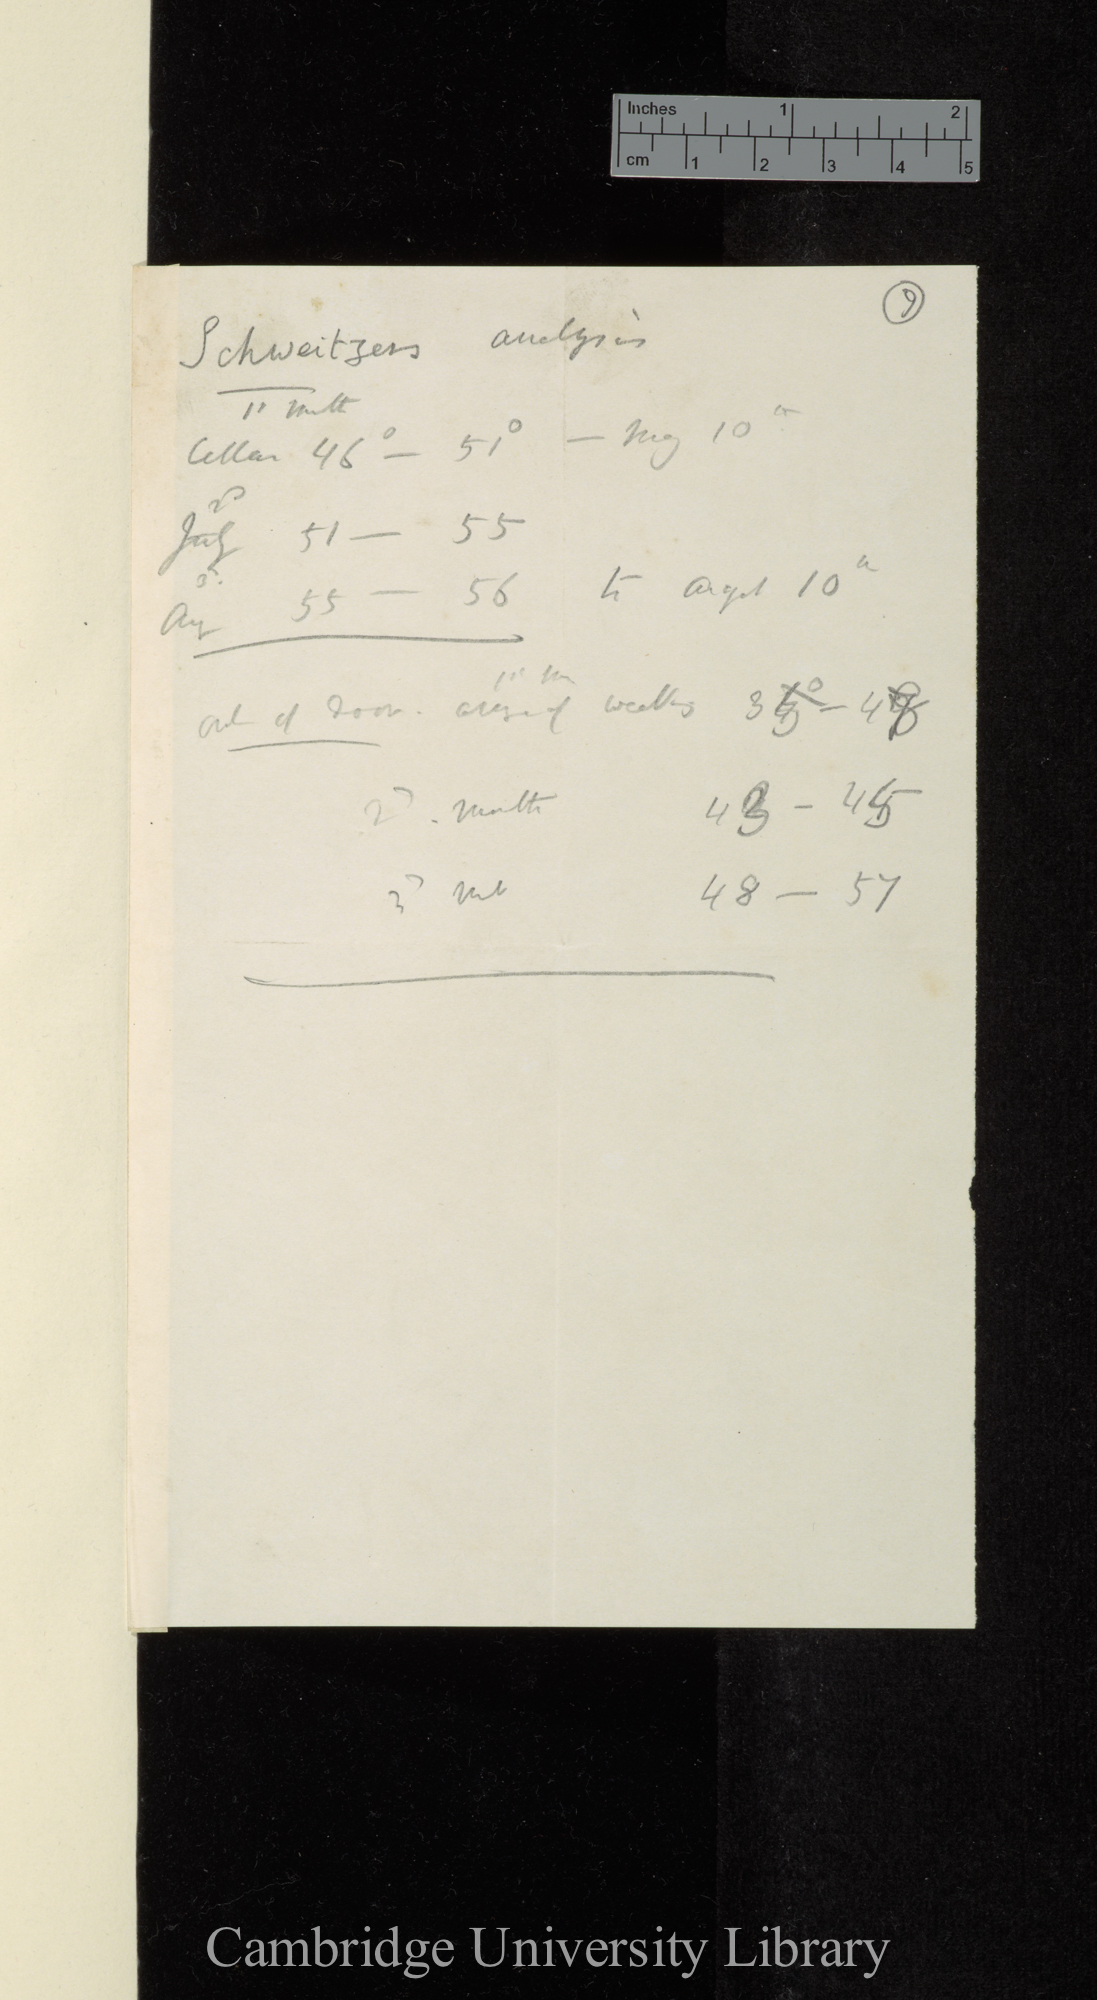 Inches 1 2
cm 1 2 3 4 5
9
Schweitzers analysis
1st Month
Cellar 46° — 51° — May 10th
2d
July 51 — 55
3d
Aug 55 — 56 to August 10th
1st
out of door. weeks
2d. month 43 — 45
3d 48 — 57
Cambridge University Library